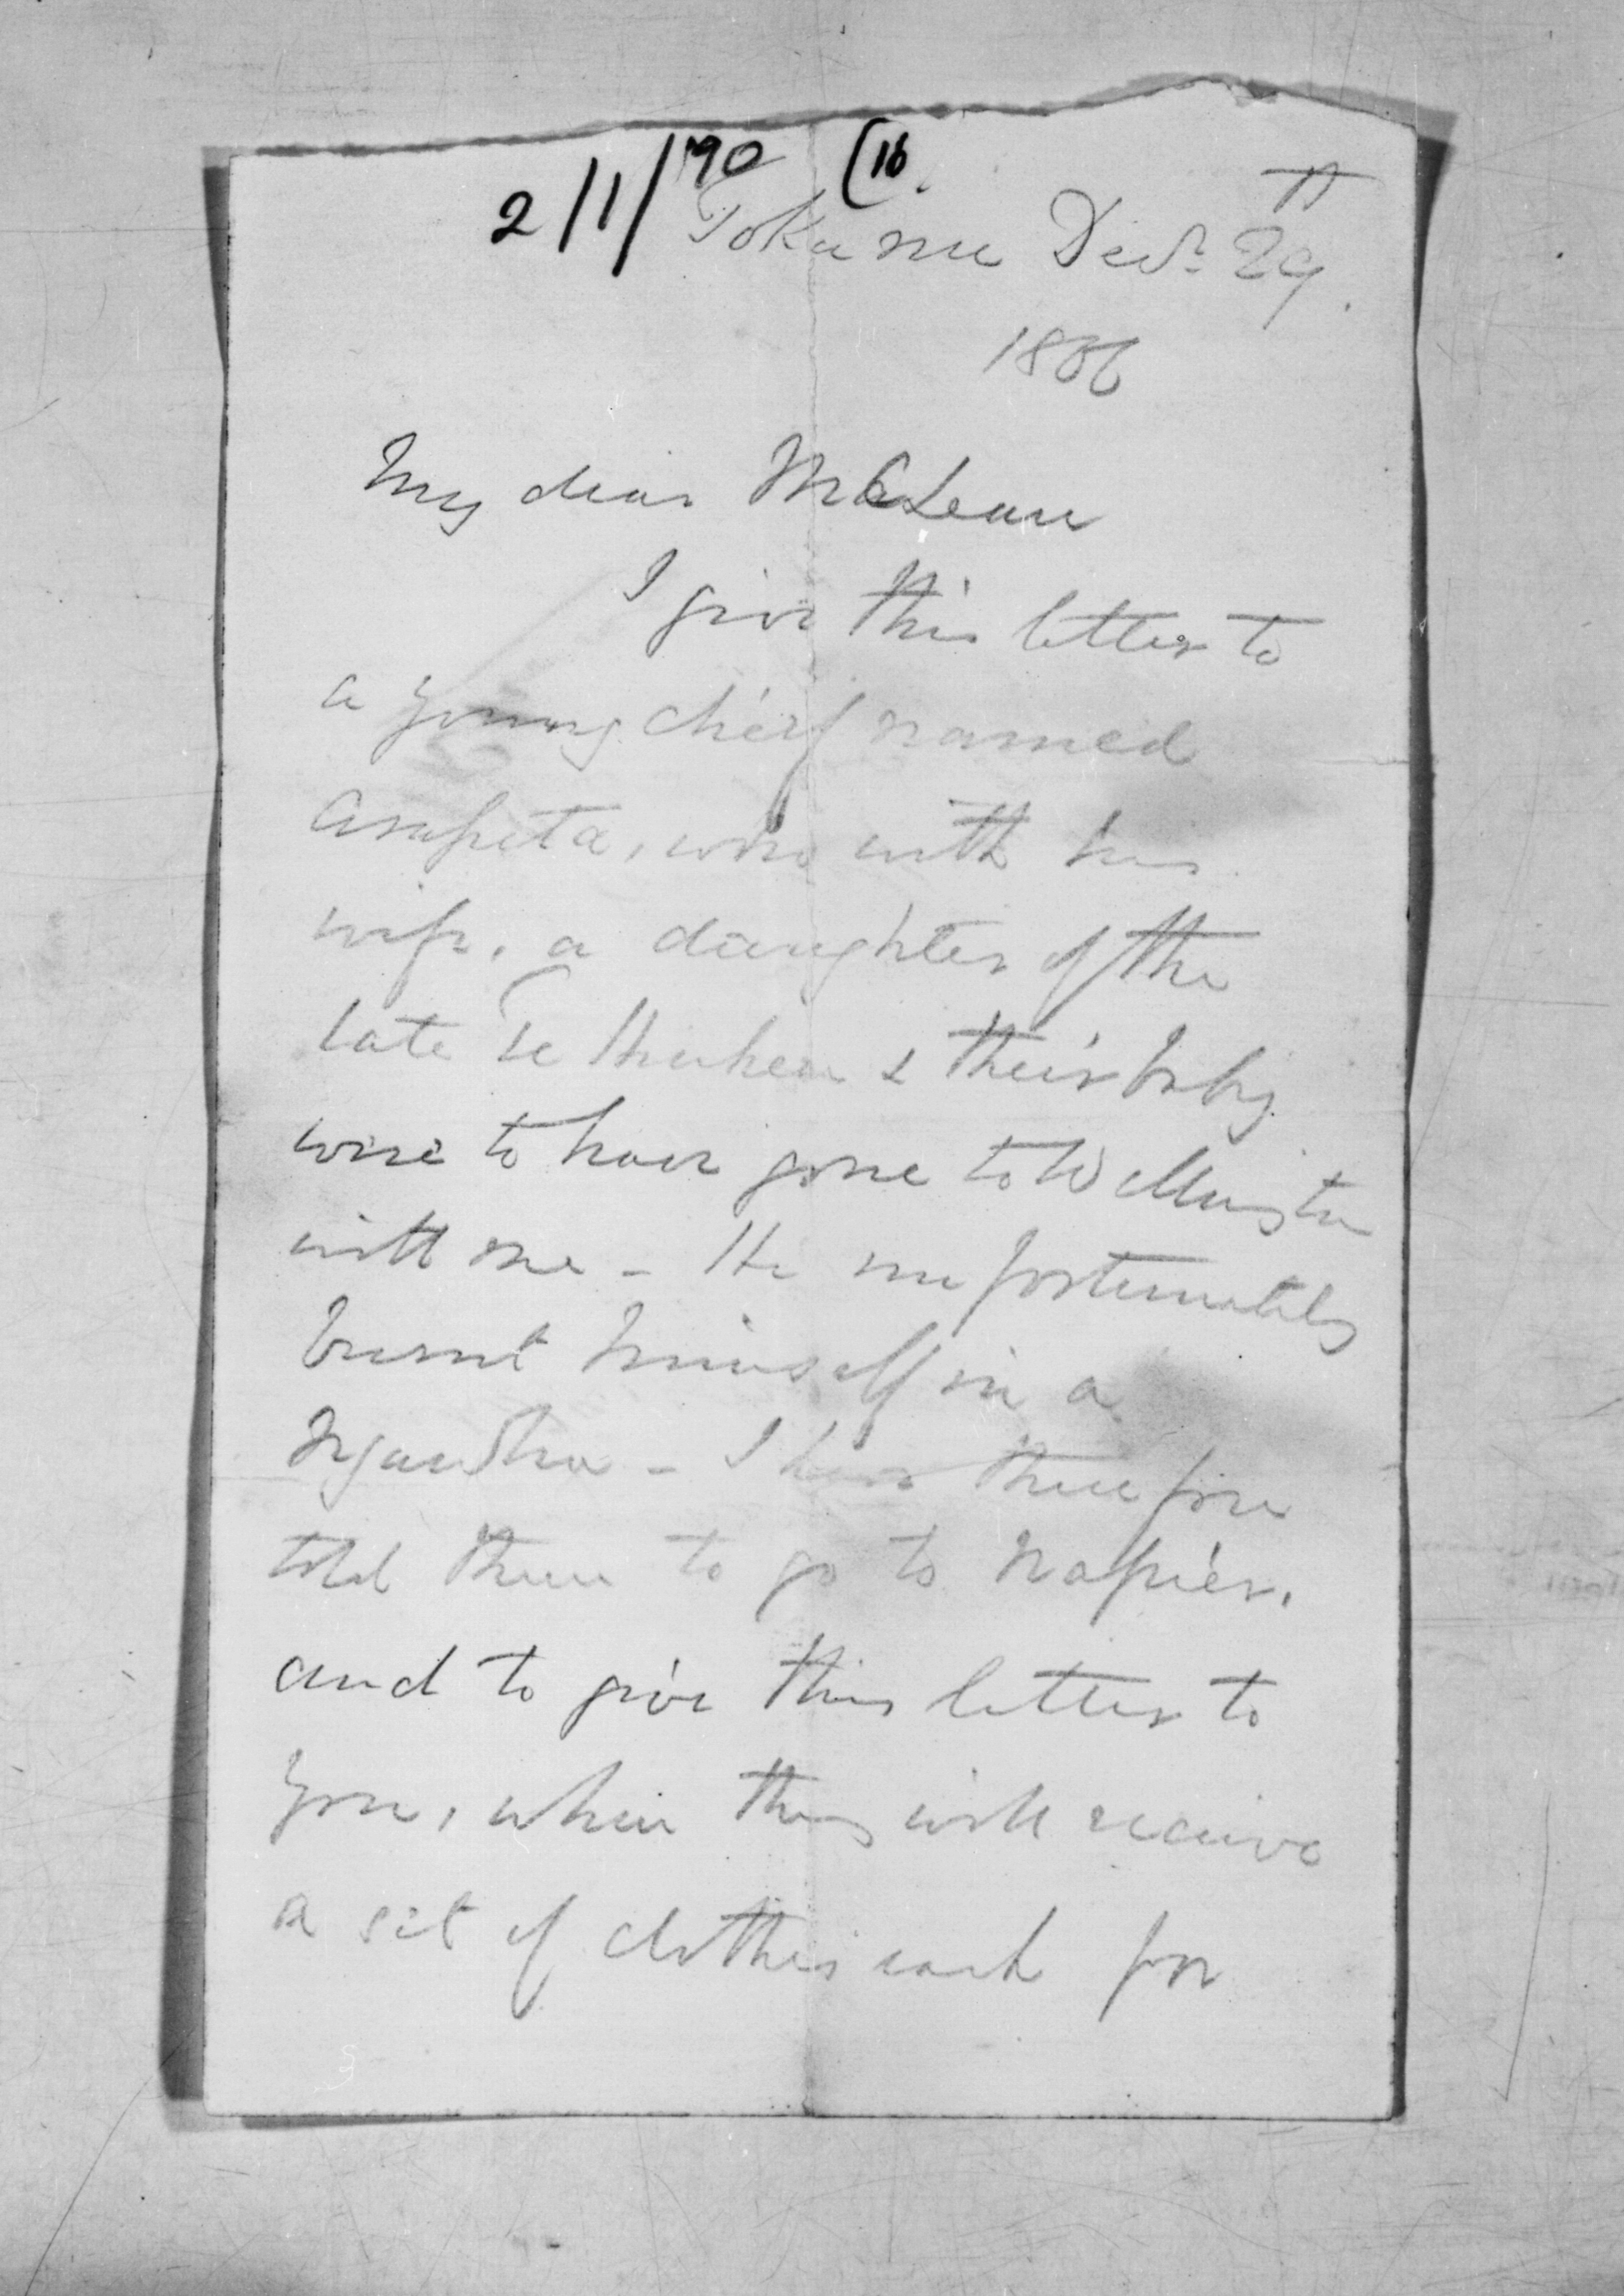 2/1/90 (16
Tokanu Decr. 29th.
1866
My dear McLean
I give this letter to
a young chief named
who with his
wife, a daughter of the
late Te Heuheu & their baby
were to have gone to Wellington
with me - He unfortunately
burnt himself in a
Ngawha - I have therefore
told them to go to Napier,
and to give this letter to
you, when they will receive
a set of clothes each for